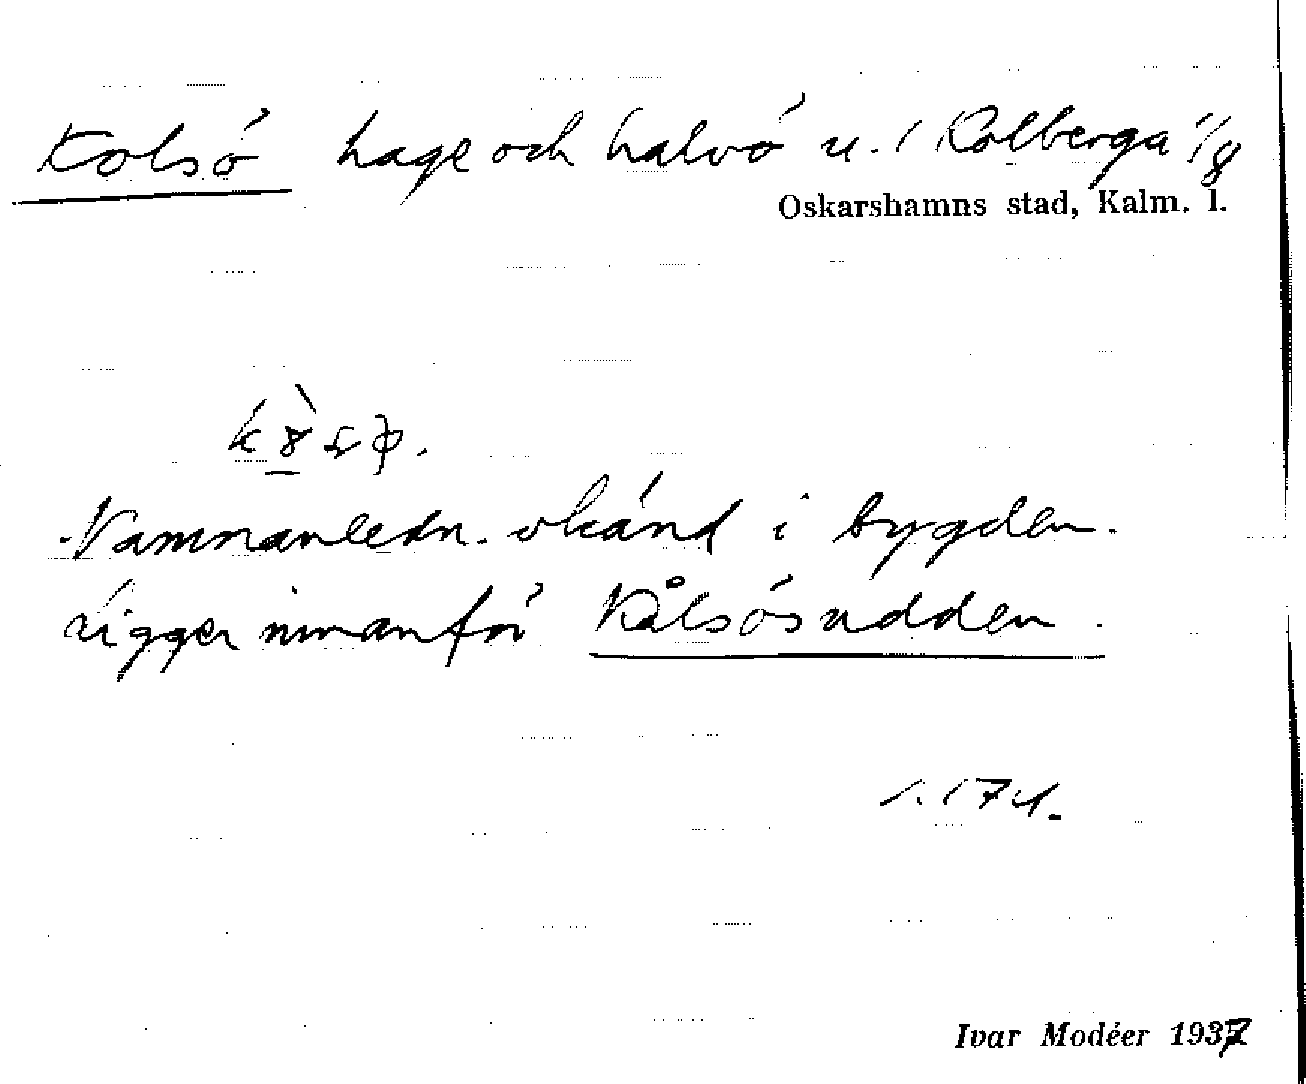 Kolsö hage och halvö u. 1 Kolberga 1/8
Oskarshamns stad, Kalm. l.
Namnanledn. okänd i bygden.
Ligger innanför Kålsösudden.
1.174.
Ivar Modéer 1937